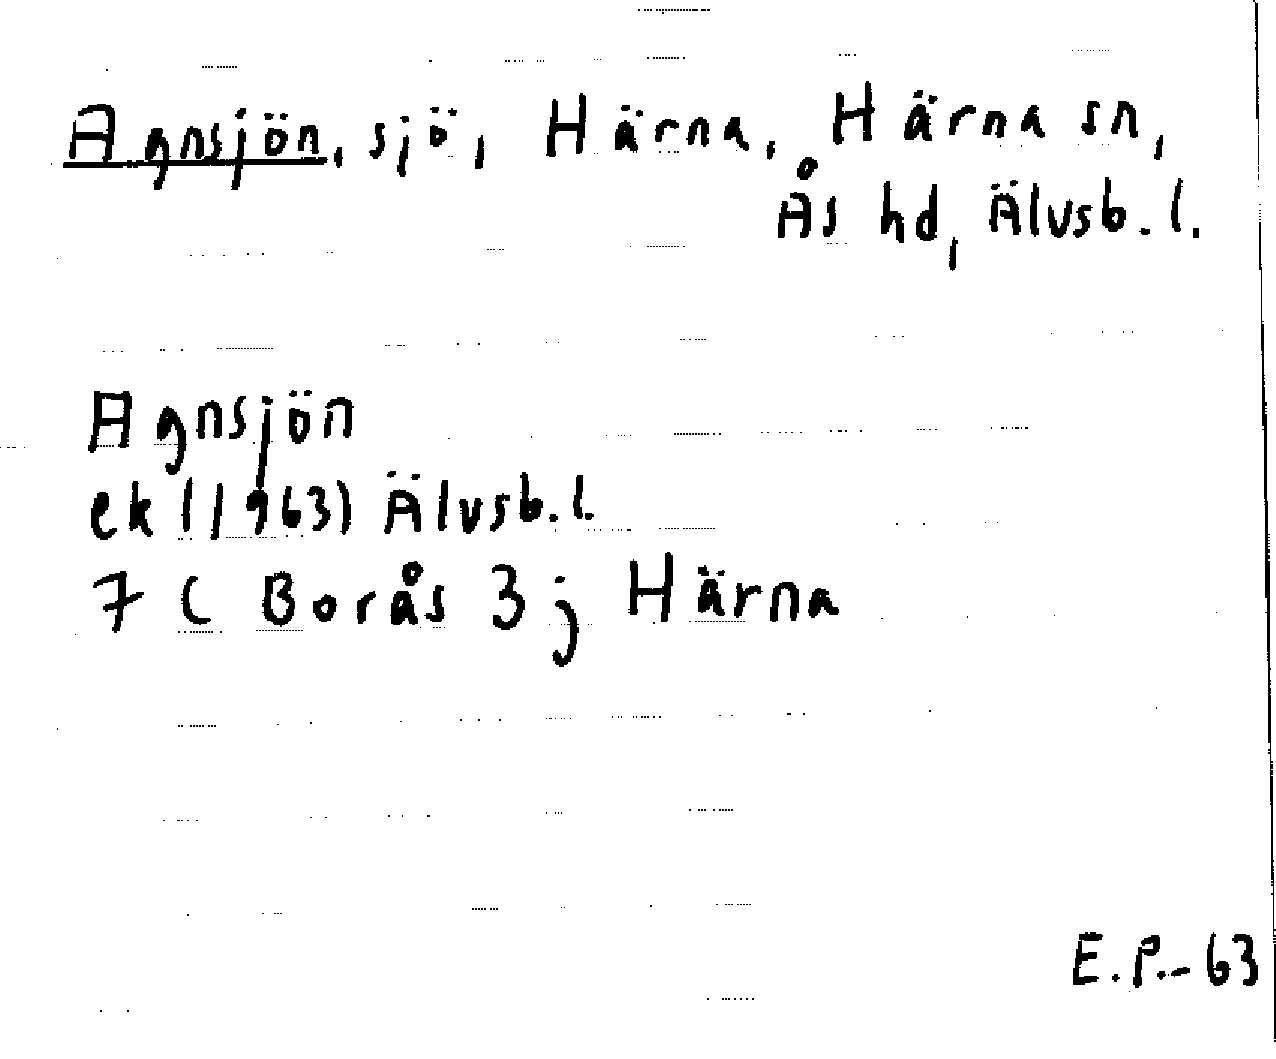 Agnsjön, sjö, Härna, Härna sn,
Ås hd, Älvsb. l.
Agnsjön
ek (1963) Älvsb. l.
7 C Borås 3 j Härna
E.P.-63